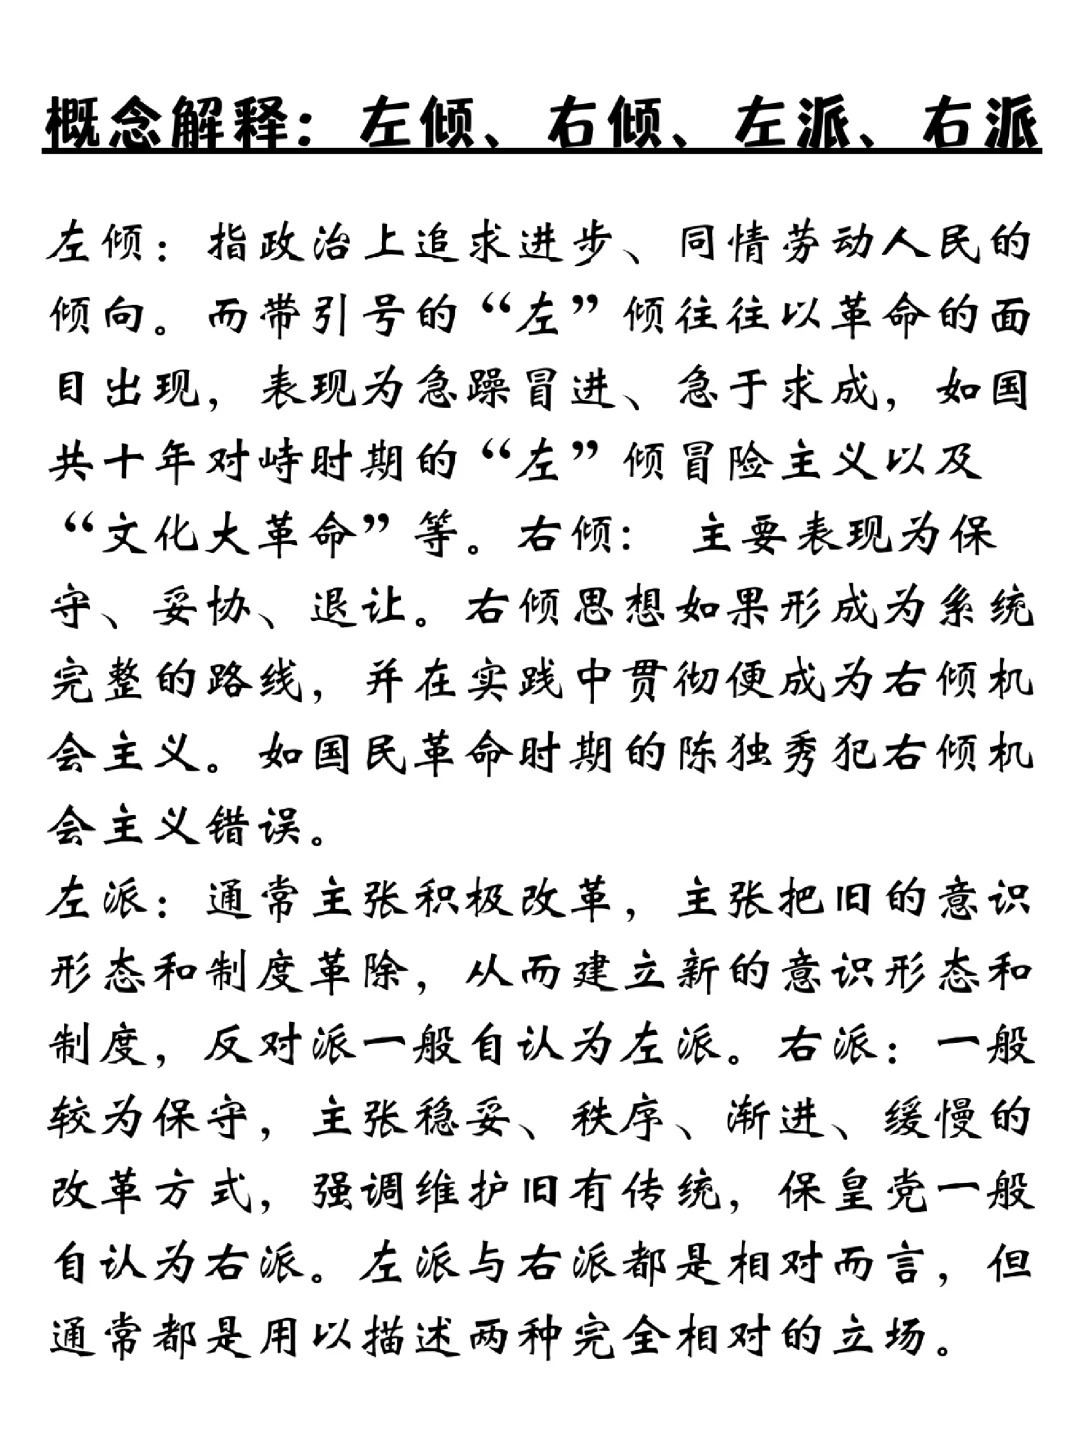 概念解释：左倾、右倾、左派、右派
左倾：指政治上追求进步、同情劳动人民的
倾向。而带引号的“左”倾往往以革命的面
目出现，表现为急躁冒进、急于求成，如国
共十年对峙时期的“左”倾冒险主义以及
“文化大革命”等。右倾： 主要表现为保
守、妥协、退让。右倾思想如果形成为系统
完整的路线，并在实践中贯彻便成为右倾机
会主义。如国民革命时期的陈独秀犯右倾机
会主义错误。
左派：通常主张积极改革，主张把旧的意识
形态和制度革除，从而建立新的意识形态和
制度，反对派一般自认为左派。右派：一般
较为保守，主张稳妥、秩序、渐进、缓慢的
改革方式，强调维护旧有传统，保皇党一般
自认为右派。左派与右派都是相对而言，但
通常都是用以描述两种完全相对的立场。